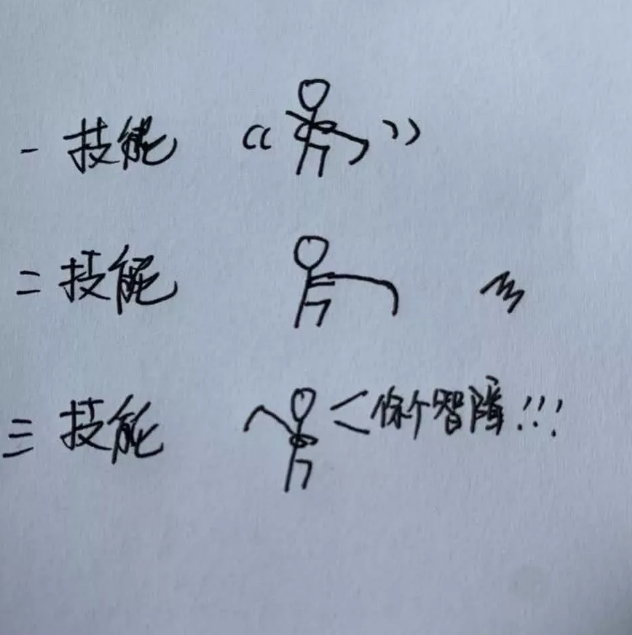 一技能
二技能
三技能 你个智障!!!